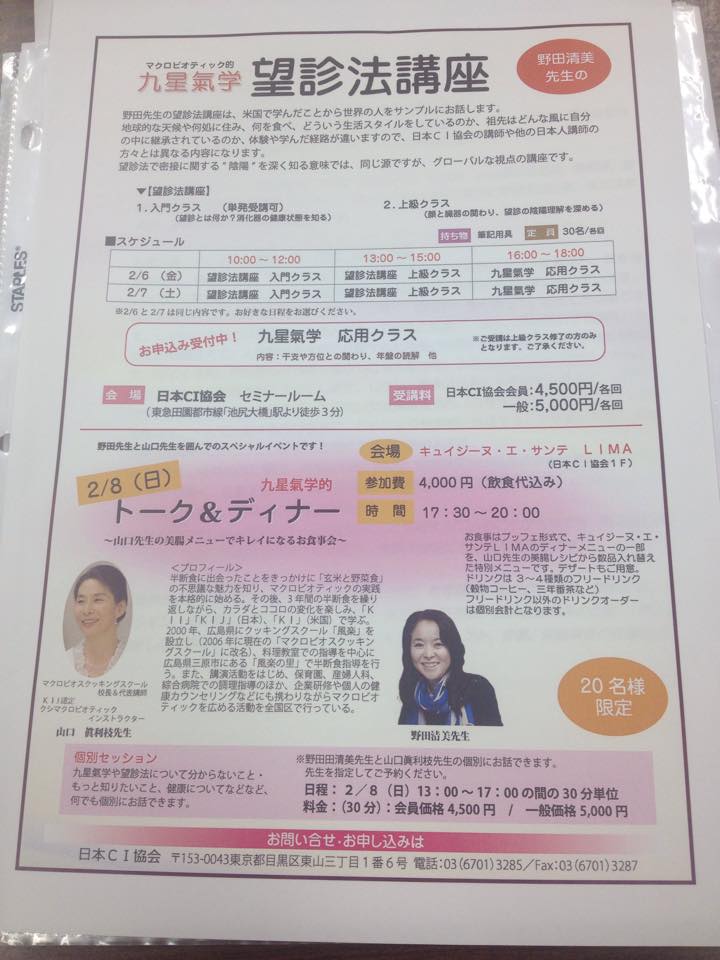 マクロビオティック的
九星氣学 望診法講座
野田清美
先生の
野田先生の望診法講座は、米国で学んだことから世界の人をサンプルにお話します。
地球的な天候や何処に住み、何を食べ、どういう生活スタイルをしているのか、祖先はどんな風に自分
の中に継承されているのか、体験や学んだ経路が違いますので、日本ＣＩ協会の講師や他の日本人講師の
方々とは異なる内容になります。
望診法で密接に関する"陰陽"を深く知る意味では、同じ源ですが、グローバルな視点の講座です。
▼【望診法講座】
1. 入門クラス （単発受講可）
（望診とは何か？消化器の健康状態を知る）
2. 上級クラス
（顔と臓器の関わり、望診の陰陽理解を深める）
持ち物 筆記用具 定員 30名/各回
■スケジュール
10:00～12:00 13:00～15:00 16:00～18:00
2/6 （金） 望診法講座 入門クラス 望診法講座 上級クラス 九星氣学 応用クラス
2/7 （土） 望診法講座 入門クラス 望診法講座 上級クラス 九星氣学 応用クラス
※2/6と2/7は同じ内容です。お好きな日程をお選びください。
お申込み受付中！ 九星氣学 応用クラス
※ご受講は上級クラス修了の方のみ
となります、ご了承ください。
内容：干支や方位との関わり、年盤の読解 他
会場 日本CI協会 セミナールーム
（東急田園都市線「池尻大橋」駅より徒歩３分）
受講料 日本CI協会会員：4,500円/各回
一般：5,000円/各回
野田先生と山口先生を囲んでのスペシャルイベントです！
2/8（日）
九星氣学的
トーク＆ディナー
～山口先生の美腸メニューでキレイになるお食事会～
会場 キュイジーヌ・エ・サンテ ＬＩＭＡ
（日本ＣＩ協会１Ｆ）
参加費 4,000円（飲食代込み）
時間 17：30～20：00
お食事はブッフェ形式で、キュイジーヌ・エ・
サンテＬＩＭＡのディナーメニューの一部
を、山口先生の美腸レシピから数品入れ替え
た特別メニューです。デザートもご用意。
ドリンクは３～４種類のフリードリンク
（穀物コーヒー、三年番茶など）
フリードリンク以外のドリンクオーダー
は個別会計となります。
＜プロフィール＞
半断食に出会ったことをきっかけに「玄米と野菜食」
の不思議な魅力を知り、マクロビオティックの実践
を本格的に始める。その後、３年間の半断食を繰り
返しながら、カラダとココロの変化を楽しみ、「Ｋ
ＩＩ」「ＫＩＪ」（日本）、「ＫＩ」（米国）で学ぶ。
2000年、広島県にクッキングスクール「風楽」を
設立し（2006年に現在の「マクロビオスクッキン
グスクール」に改名）、料理教室での指導を中心に
広島県三原市にある「風楽の里」で半断食指導を行
う。また、講演活動をはじめ、保育園、産婦人科、
綜合病院での調理指導のほか、企業研修や個人の健
康カウンセリングなどにも携わりながらマクロビオ
ティックを広める活動を全国区で行っている。
マクロビオスクッキングスクール
校長＆代表講師
ＫＩＩ認定
クシマクロビオティック
インストラクター
山口 眞利枝先生
野田清美先生
20名様
限定
個別セッション
九星氣学や望診法について分からないこと・
もっと知りたいこと、健康についてなどなど、
何でも個別にお話できます。
※野田田清美先生と山口眞利枝先生の個別にお話できます。
先生を指定してご予約ください。
日程：２／８（日）13：00～17：00の間の30分単位
料金：（30分）：会員価格4,500円 / 一般価格5,000円
お問い合せ・お申し込みは
日本ＣＩ協会 〒153-0043東京都目黒区東山三丁目１番６号 電話：03(6701)3285／Fax：03(6701)3287
STAPLES®